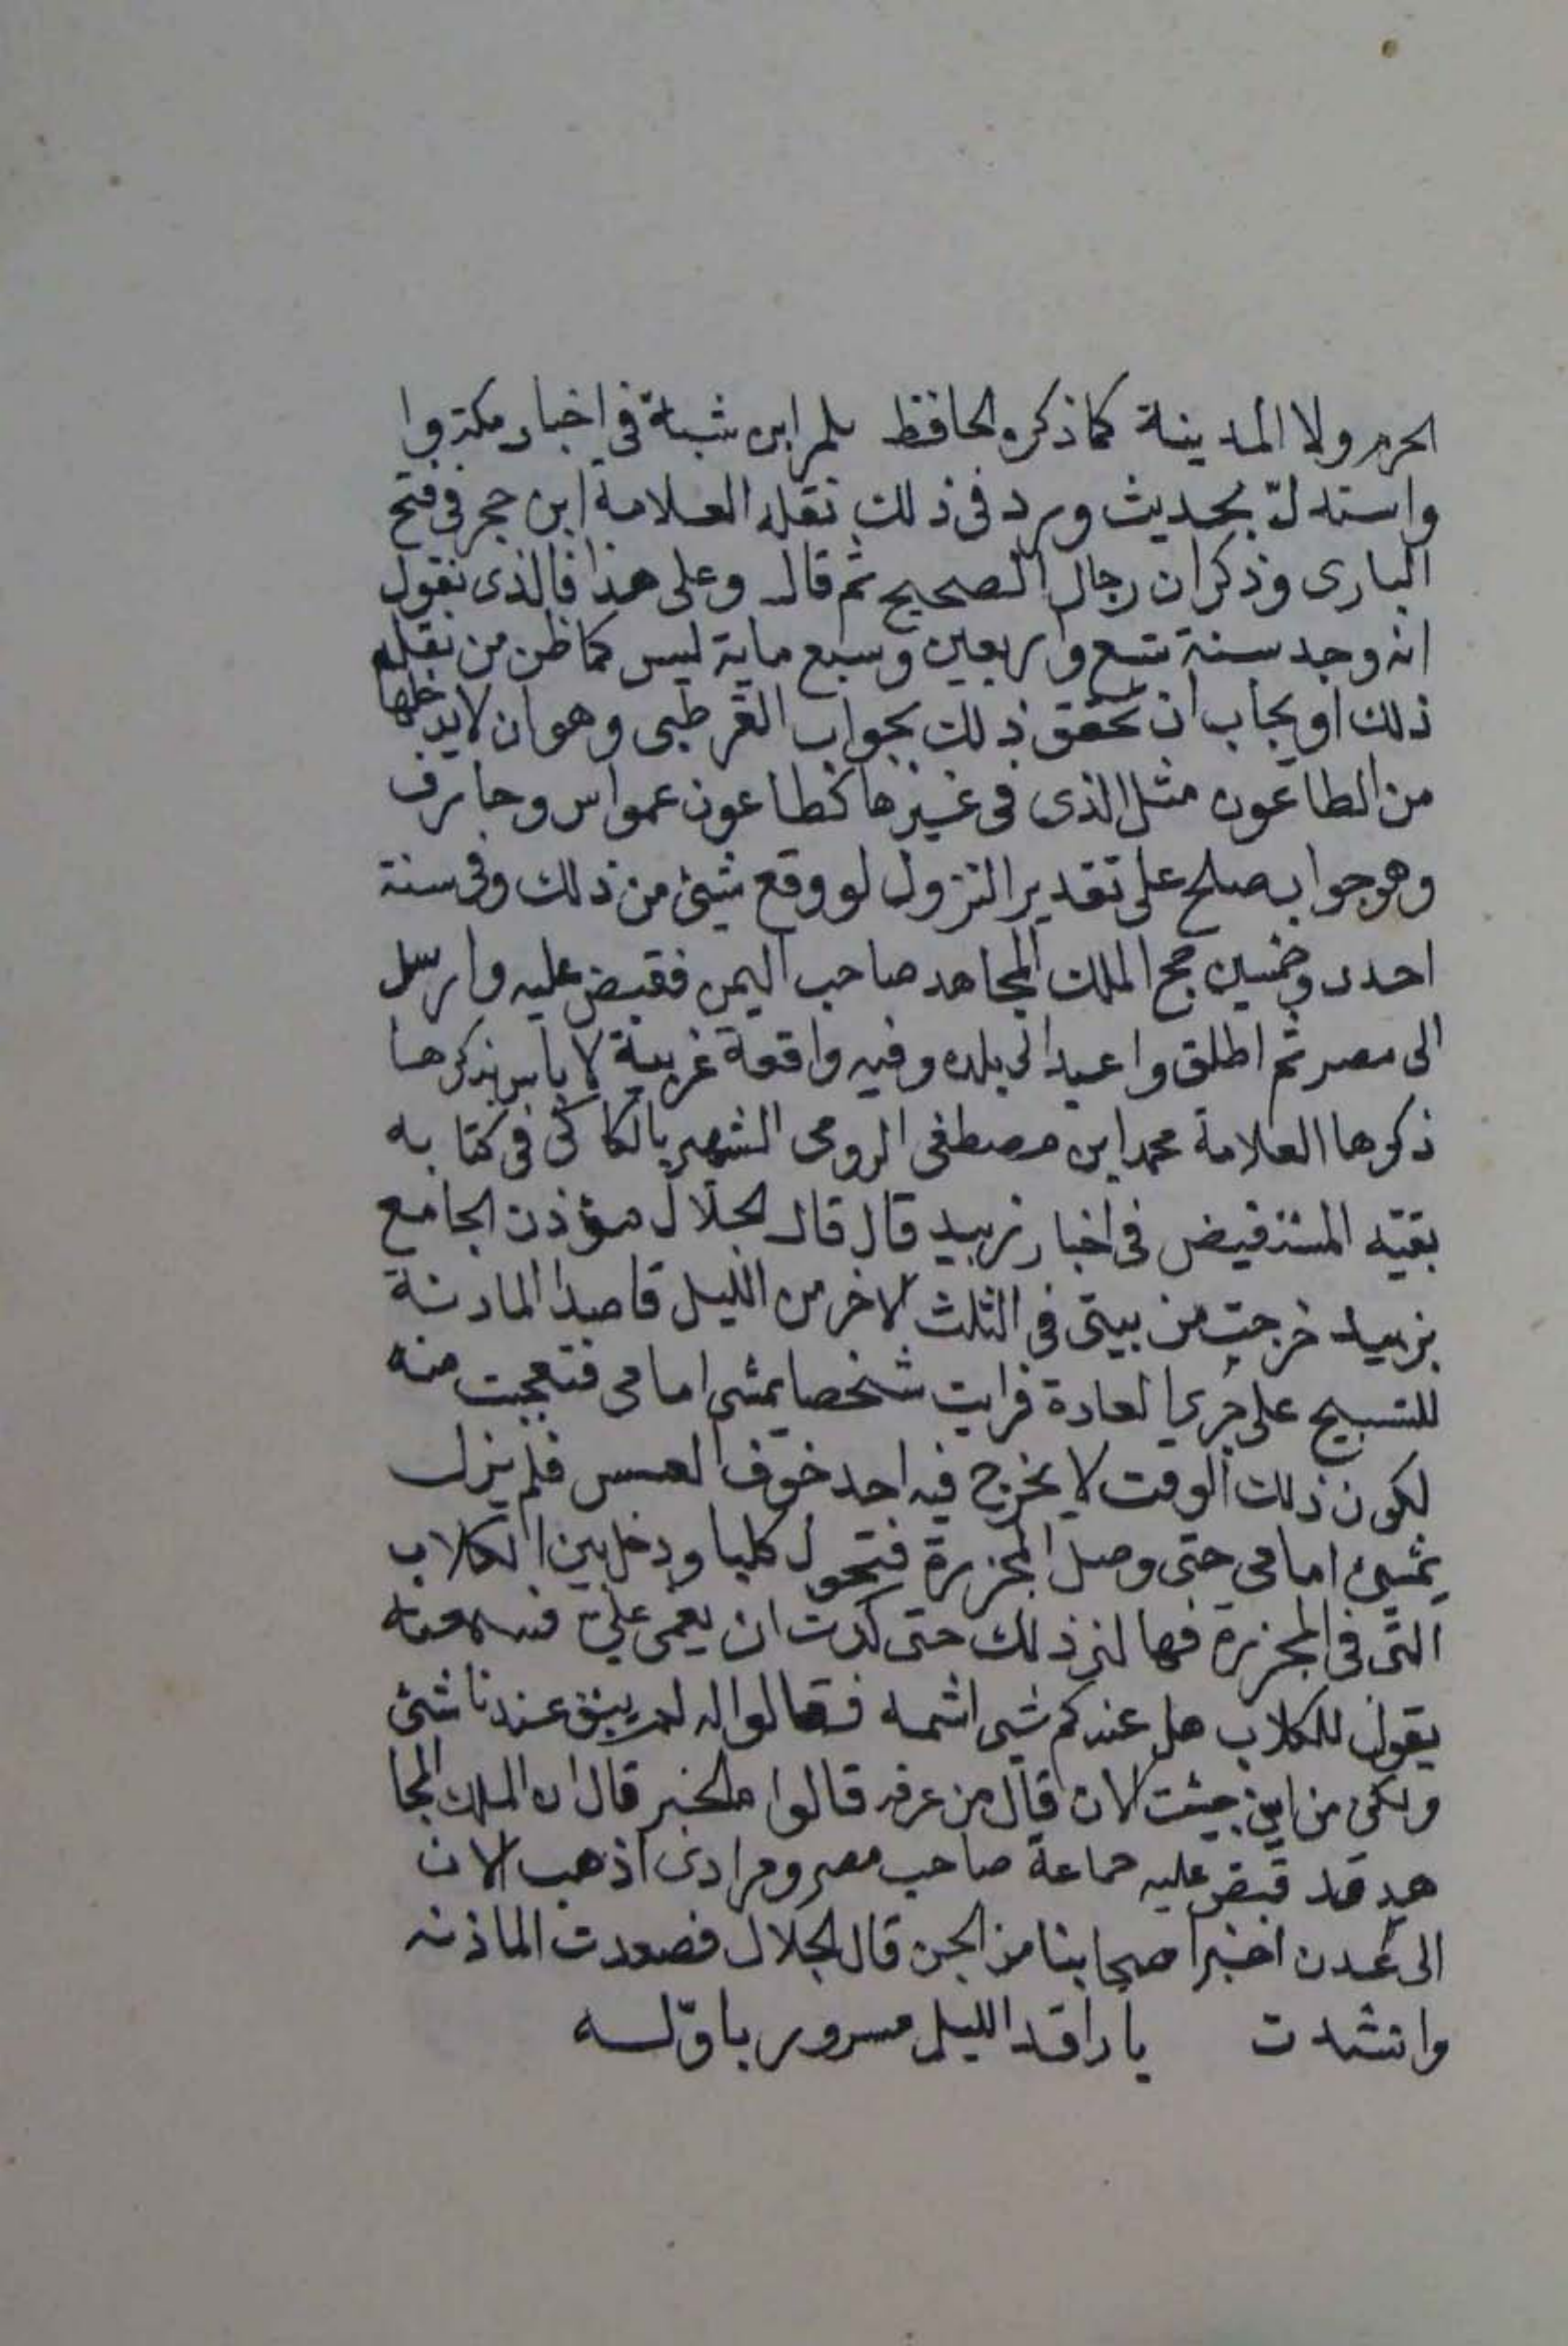 الحرم ولا المدينة كما ذكره الحافظ ابن شبة في اخبار مكة وا
واستدلّ بحديث ورد فى ذلك نقله العلامة ابن حجر فى فتح
البارى وذكر ان رجال الصحيح ثم قال وعلى هذا فالذى نقول
انه وجد سنة تسع واربعين وسبع ماية ليس كما ظن من نقله
ذلك او يجاب ان تحقق ذلك بجواب القرطبى وهو ان لا يدخلها
من الطاعون مثل الذى فى غيرها كطاعون عمواس وجارف
وهو جواب صلح على تقدير التنزول لو وقع شيئ من ذلك وفى سنة
احدى وخمسين حج الملك المجاهد صاحب اليمن فقبض عليه وارسل
الى مصر ثم اطلق واعيد الى بلده وفيه واقعة غريبة لا باس بذكرها
ذكرها العلامة محمد ابن مصطفى الرومى الشهير بالكاكى فى كتابه
بقية المستفيض فى اخبار زبيد قال قال الجلال مؤذن الجامع
بزبيد خرجت من بيتى فى الثلث الاخر من الليل قاصدا المادنة
للتسبيح على جرى العادة فرايت شخصا يمشى امامى فتعجبت منه
لكون ذلك الوقت لا يخرج فيه احد خوف العسس فلم يزل
يمشىء امامى حتى وصل المجزرة فتحول كلبا ودخل بين الكلاب
التى فى المجزرة فهالنى ذلك حتى كدت ان يغمى علىّ فسمعته
يقول للكلاب هل عندكم شى اشمه فقالوا له لم يبق عندنا شئى
ولكن من اين جيئت الان قال من عرفه قالوا ما الخبر قال ان الملك المجا
هد قد قبض عليه جماعة صاحب مصر ومرادى اذهب الان
الى عدن اخبر اصحابنا من الجن قال الجلال فصعدت الماذنه
وانشدت يا راقد الليل مسرور باوّله